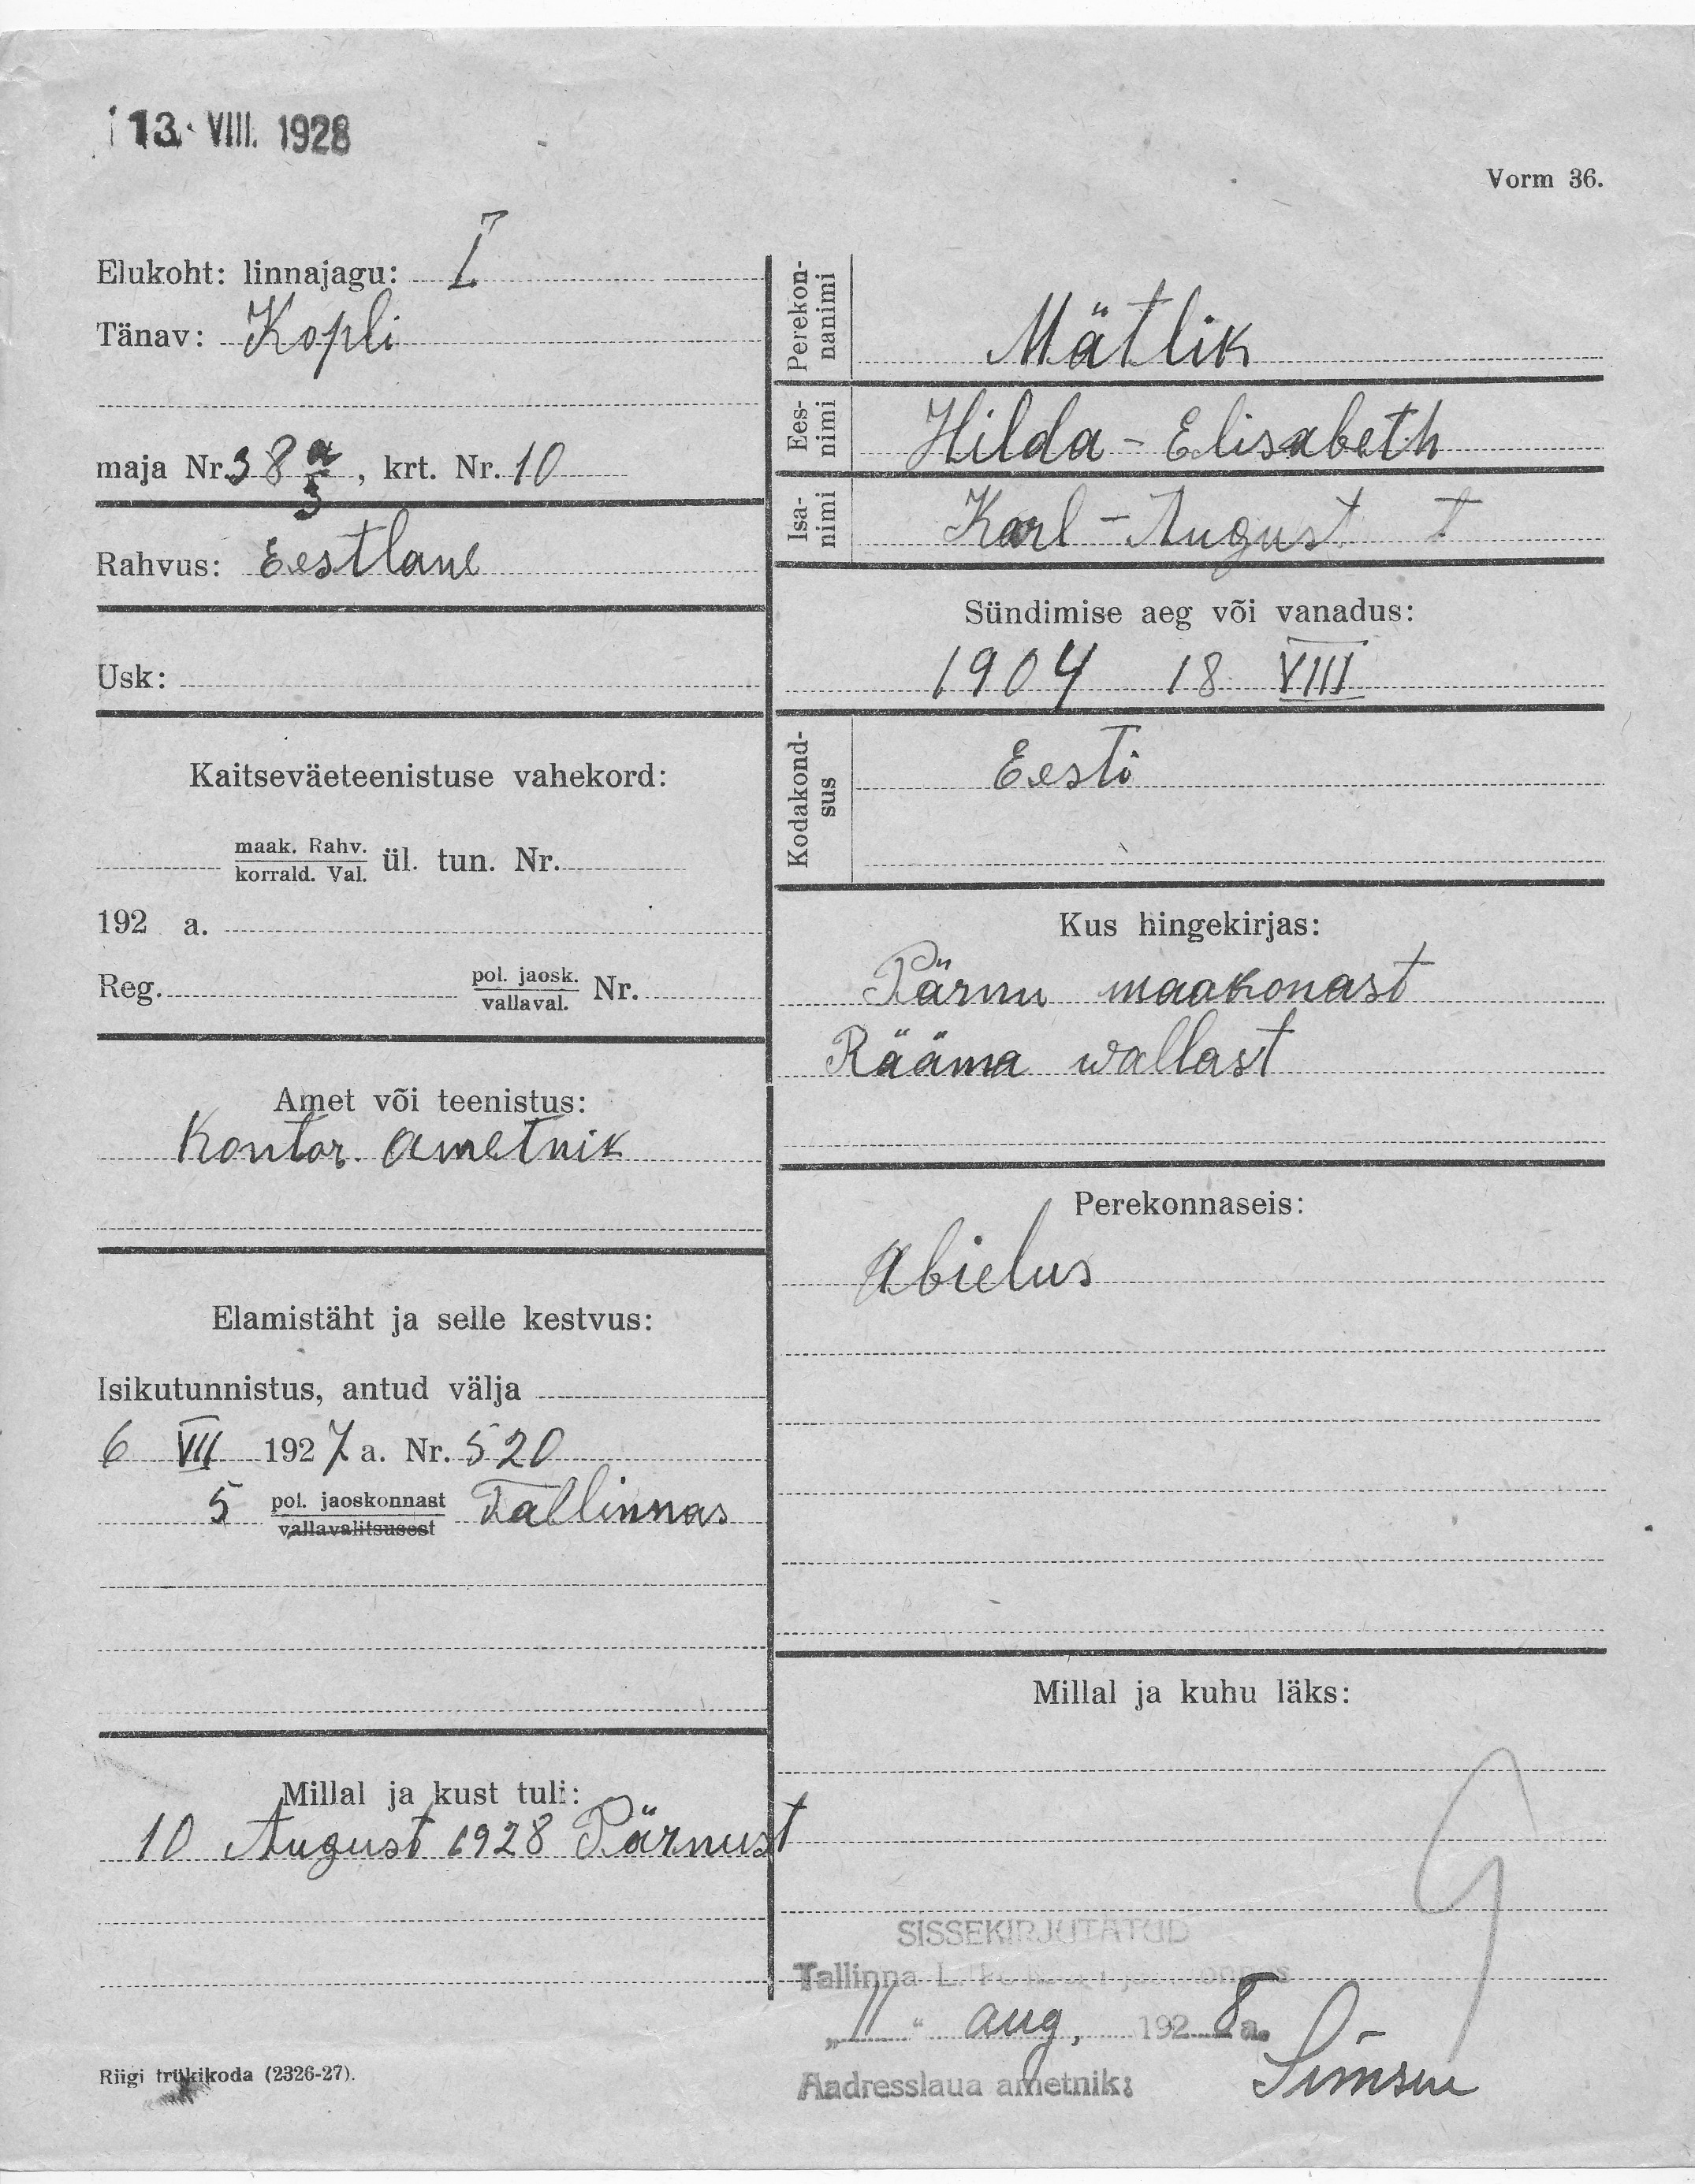 13. VIII. 1928
Vorm 36.
Elukoht: linnajagu: I
Tänav: Kopli
maja Nr. 38 a/3, krt. Nr. 10
Rahvus: Eestlane
Usk:
Kaitseväeteenistuse vahekord:
maak. Rahv.
korrald. Val. ül. tun. Nr.
192 a.
Reg. pol. jaosk.
vallaval. Nr.
Amet või teenistus:
Kontor. ametnik
Elamistäht ja selle kestvus:
Isikutunnistus, antud välja
6 VII 1927 a. Nr. 520
5 pol. jaoskonnast Tallinnas
vallavalitsusest
Millal ja kust tuli:
10 August 1928 Pärnust
Riigi trükikoda (2326-27).
Perekon-
nanimi
Mätlik
Ees-
nimi
Hilda-Elisabeth
Isa-
nimi
Karl-August t
Sündimise aeg või vanadus:
1904 18 VIII
Kodakond-
sus
Eesti
Kus hingekirjas:
Pärnu maakonast
Rääma wallast
Perekonnaseis:
Abielus
Millal ja kuhu läks:
SISSEKIRJUTATUD
Tallinna L.
„11“ aug, 1928 a.
Aadresslaua ametnik: